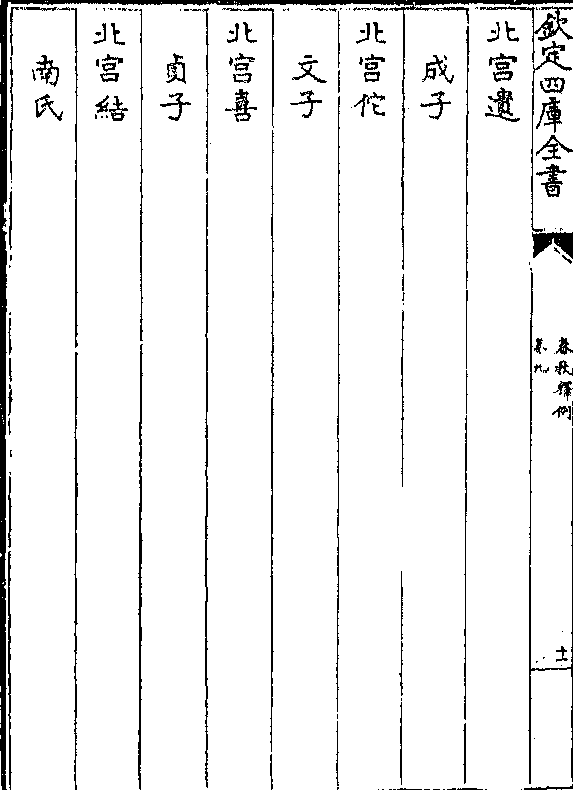 欽定四庫全書
春秋釋例
卷九
十一
北宫遺
成子
北宫佗
文子
北宫喜
貞子
北宫結
南氏